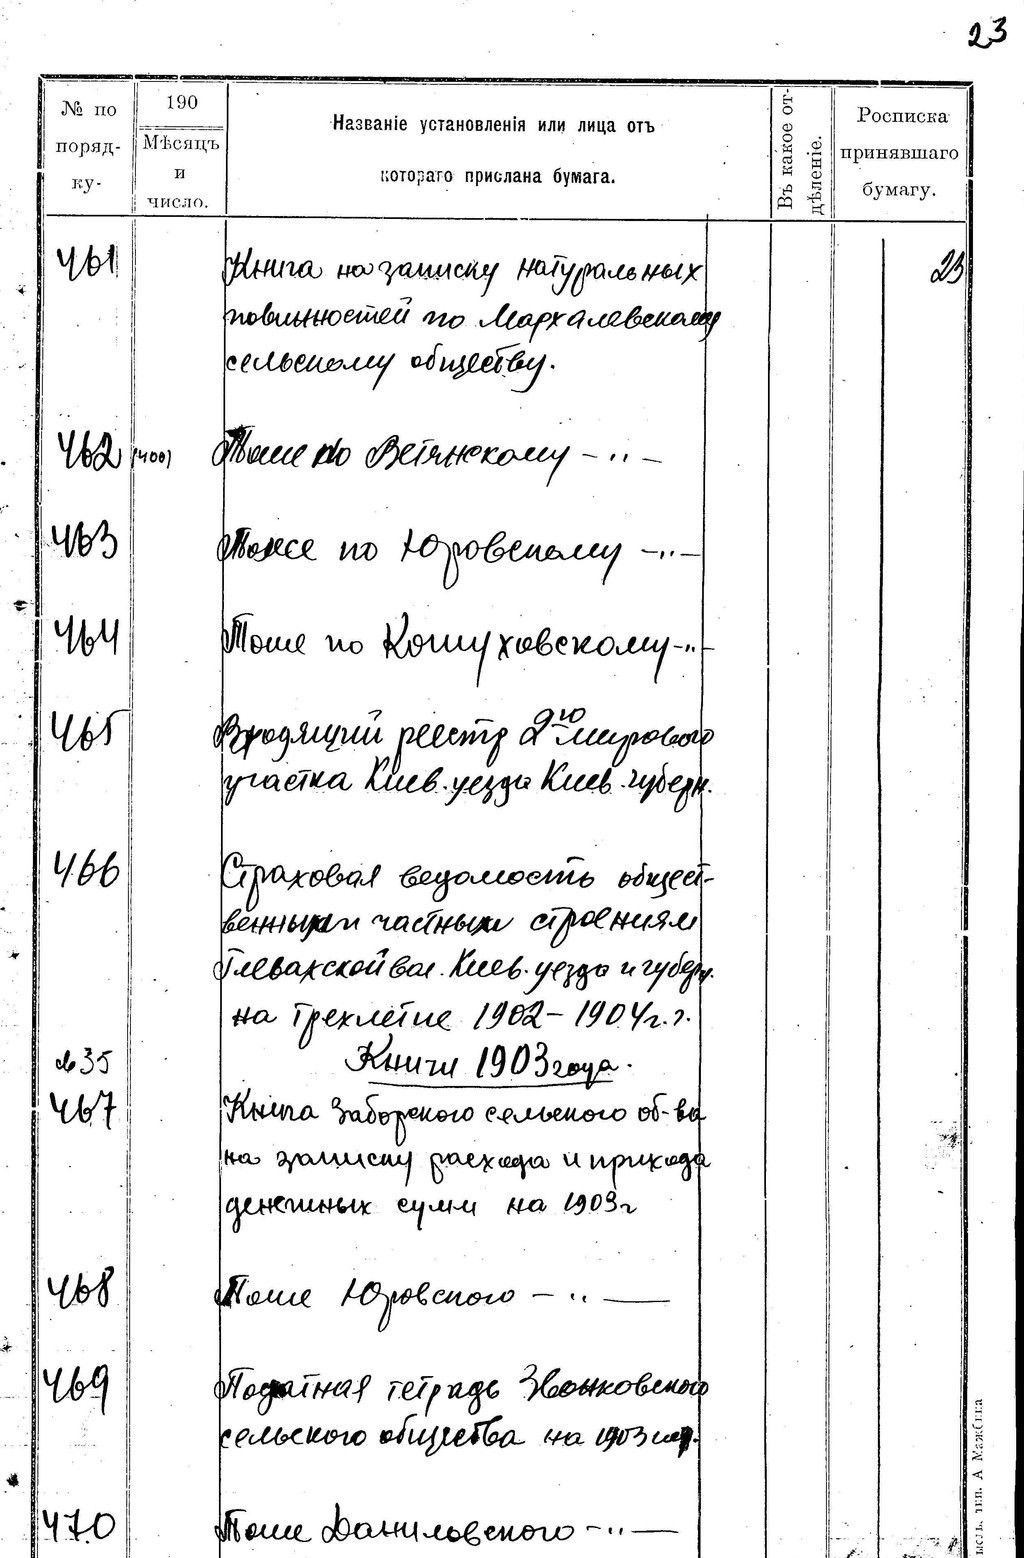 23
№ по поряд- ку-
190
Мѣсяцъ и число.
Названіе установленія или лица отъ
котораго прислана бумага.
Въ какое от- дѣленіе.
Росписка принявшаго бумагу.
461 Книга на записку натуральных 23
повинностей по Мархалевскому
сельскому обществу.
462 (400) Тоже по Ветянскому -"-
463 Тоже по Юровскому -"-
464 Тоже по Кошуховскому -"-
465 Входящий реестр 2го мирового
участка Киев. уезда Киев. губерн.
466 Страховая ведомость общест-
венным и частным строениям
Глевахской вол. Киев. уезда и губерн.
на трехлетие 1902-1904 г.г.
№35 Книги 1903 года.
467 Книга Заборского сельского об-ва
на записку расхода и прихода
денежных сумм на 1903 г
468 Тоже Юровского - " -
469 Податная тетрадь Звонковского
сельского общества на 1903 год.
470 Тоже Даниловского -"-
тип. А